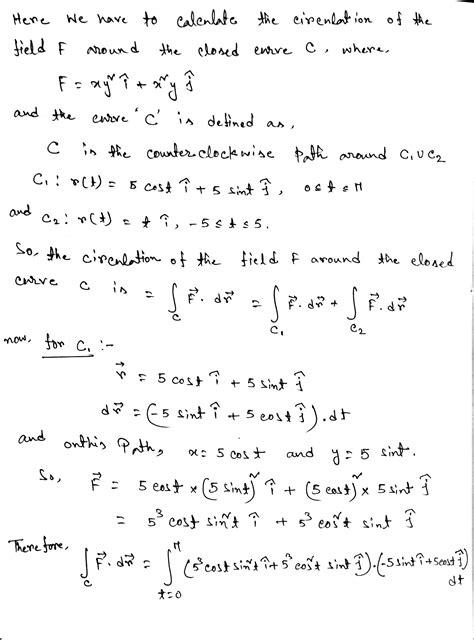 Here we have to calculate the circulation of the
field F around the closed curve C, where,
F = xy² î + x²y ĵ
and the curve 'C' is defined as,
C is the counterclockwise path around C₁∪C₂
C₁: r(t) = 5 cost î + 5 sint ĵ, 0≤t≤π
and C₂: r(t) = t î, -5≤t≤5.
So, the circulation of the field F around the closed
curve C is = ∫_C F⃗. dr⃗ = ∫_C₁ F⃗. dr⃗ + ∫_C₂ F⃗. dr⃗
now, for C₁ :-
r⃗ = 5 cost î + 5 sint ĵ
dr⃗ = (-5 sint î + 5 cost ĵ).dt
and onthis path, x= 5 cost and y = 5 sint.
So, F⃗ = 5 cost × (5 sint)² î + (5 cost)² × 5 sint ĵ
= 5³ cost sin²t î + 5³ cos²t sint ĵ
Therefore, ∫_C F⃗. dr⃗ = ∫_{t=0}^{π} (5³ cost sin²t î + 5³ cos²t sint ĵ).(-5 sint î + 5 cost ĵ) dt